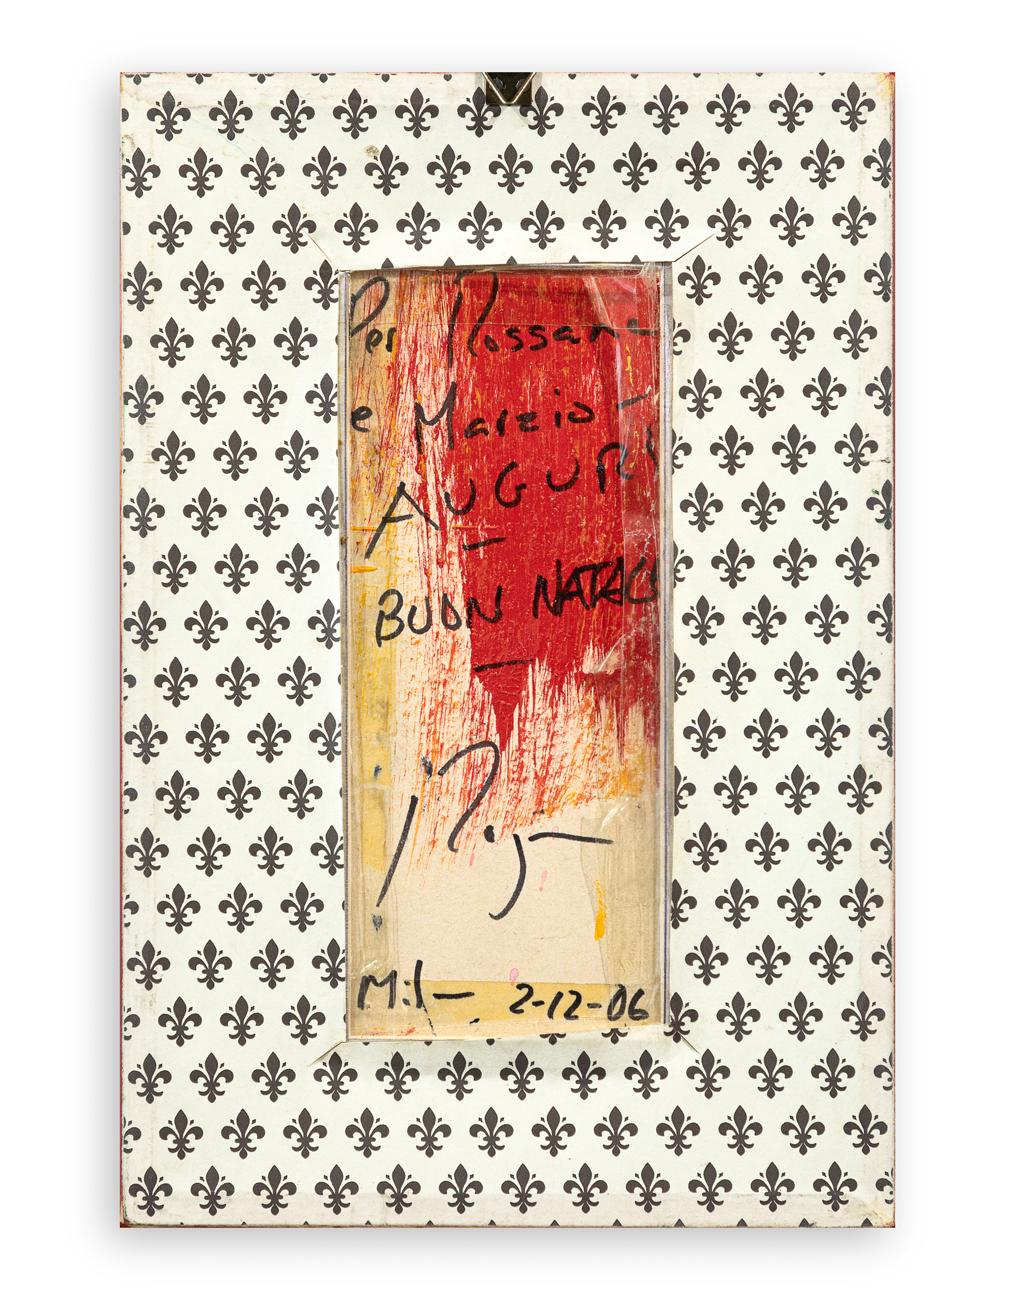 Per Rossana
e Marzio -
AUGURI
BUON NATALE
Mil- 2-12-06